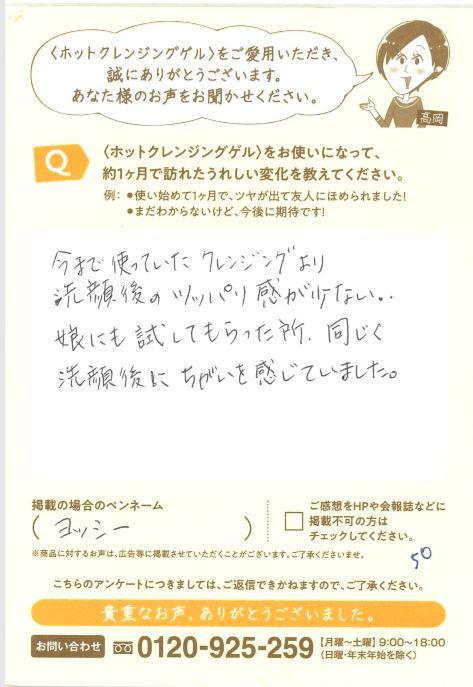 〈ホットクレンジングゲル〉をご愛用いただき、
誠にありがとうございます。
あなた様のお声をお聞かせください。
高岡
Q
〈ホットクレンジングゲル〉をお使いになって、
約1ヶ月で訪れたうれしい変化を教えてください。
例：●使い始めて1ヶ月で、ツヤが出て友人にほめられました!
●まだわからないけど、今後に期待です!
今まで使っていたクレンジングより
洗顔後のツッパリ感が少ない..
娘にも試してもらった所、同じく
洗顔後にちがいを感じていました。
掲載の場合のペンネーム
(ヨッシー)
ご感想をHPや会報誌などに
掲載不可の方は
チェックしてください。
※商品に対するお声は、広告等に掲載させていただくことがございます。ご了承くださいませ。
50
こちらのアンケートにつきましては、ご返信できかねますので、ご了承ください。
貴重なお声、ありがとうございました。
お問い合わせ 0120-925-259 【月曜〜土曜】9:00〜18:00
(日曜・年末年始を除く)